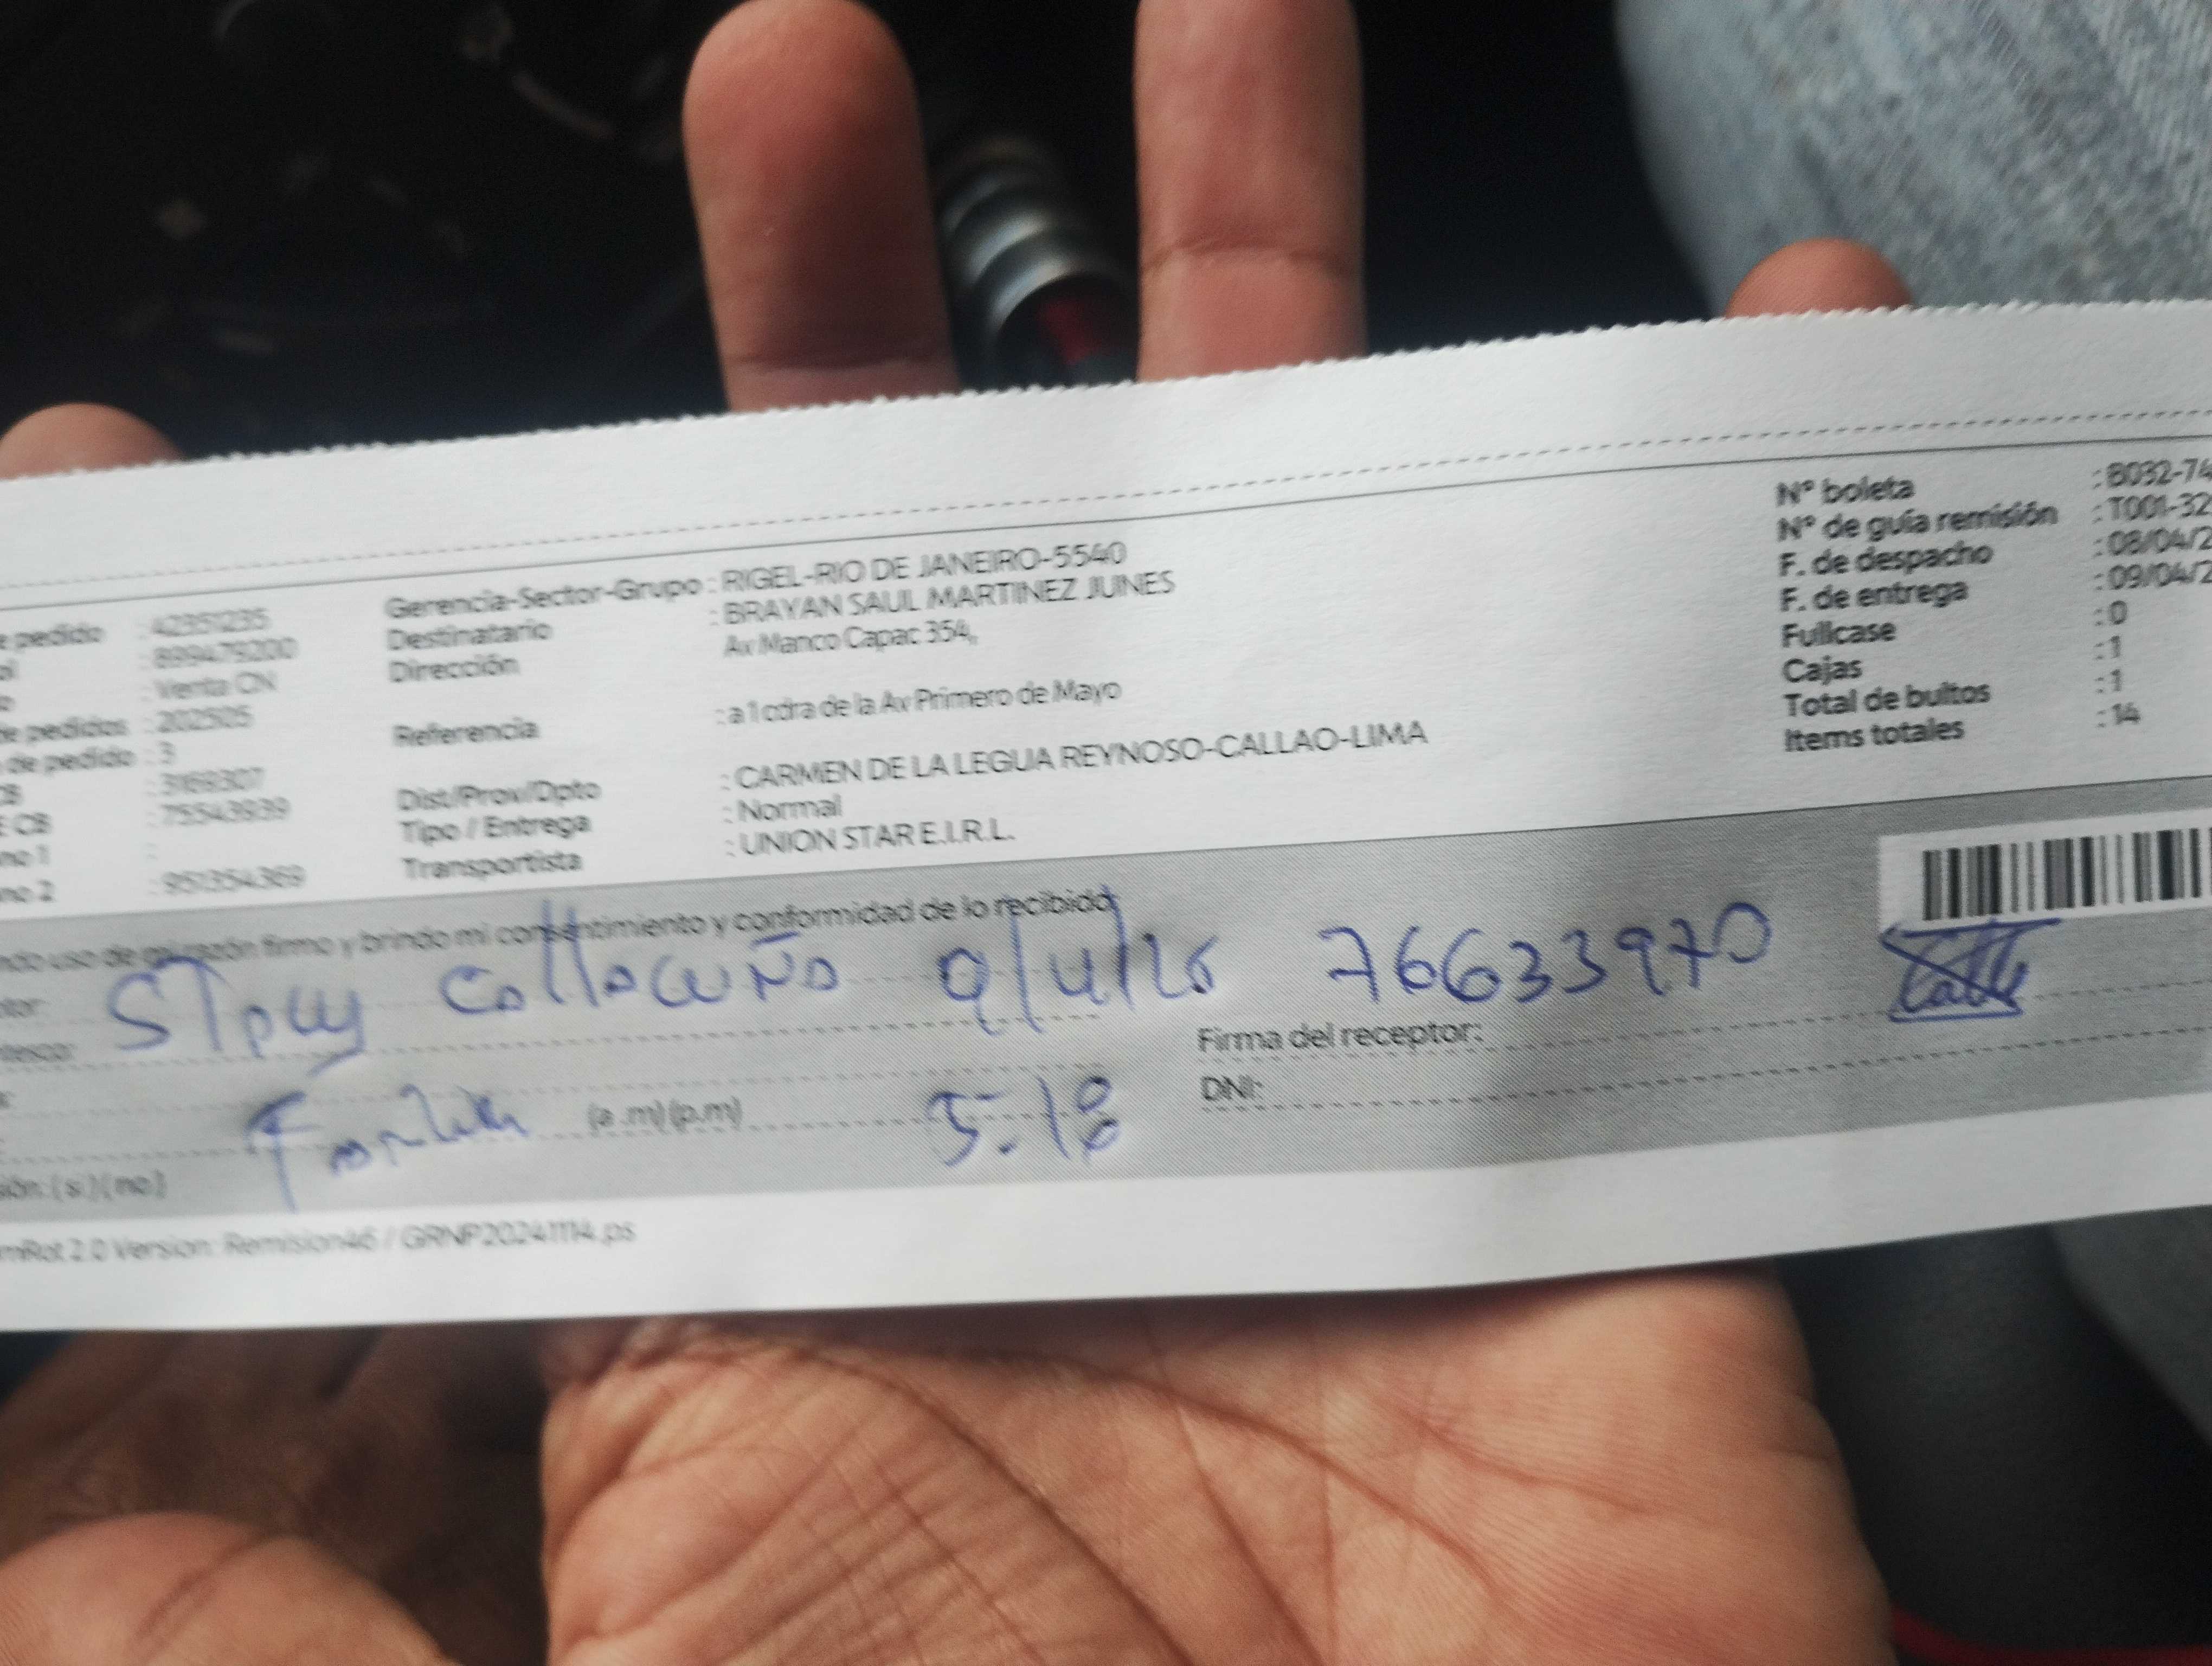 e pedido : 42351235
: 899479200
: Venta CN
de pedidos : 202505
de pedido : 3
CB : 3169307
E CB : 75543939
no 1 :
no 2 : 951354369
Gerencia-Sector-Grupo : RIGEL-RIO DE JANEIRO-5540
Destinatario : BRAYAN SAUL MARTINEZ JUNES
Dirección Av Manco Capac 354,
Referencia : a 1 cdra de la Av Primero de Mayo
Dist/Prov/Dpto : CARMEN DE LA LEGUA REYNOSO-CALLAO-LIMA
Tipo / Entrega : Normal
Transportista : UNION STAR E.I.R.L.
Nº boleta : B032-74
Nº de guía remisión : T001-32
F. de despacho : 08/04/2
F. de entrega : 09/04/2
Fullcase : 0
Cajas : 1
Total de bultos : 1
Items totales : 14
ndo uso de mi razón firmo y brindo mi consentimiento y conformidad de lo recibido
9/4/25 76633970
Firma del receptor:
(a.m) (p.m) 5:18
DNI:
sión: (si) (no)
mRot 2.0 Version: Remision46 / GRNP20241114.ps